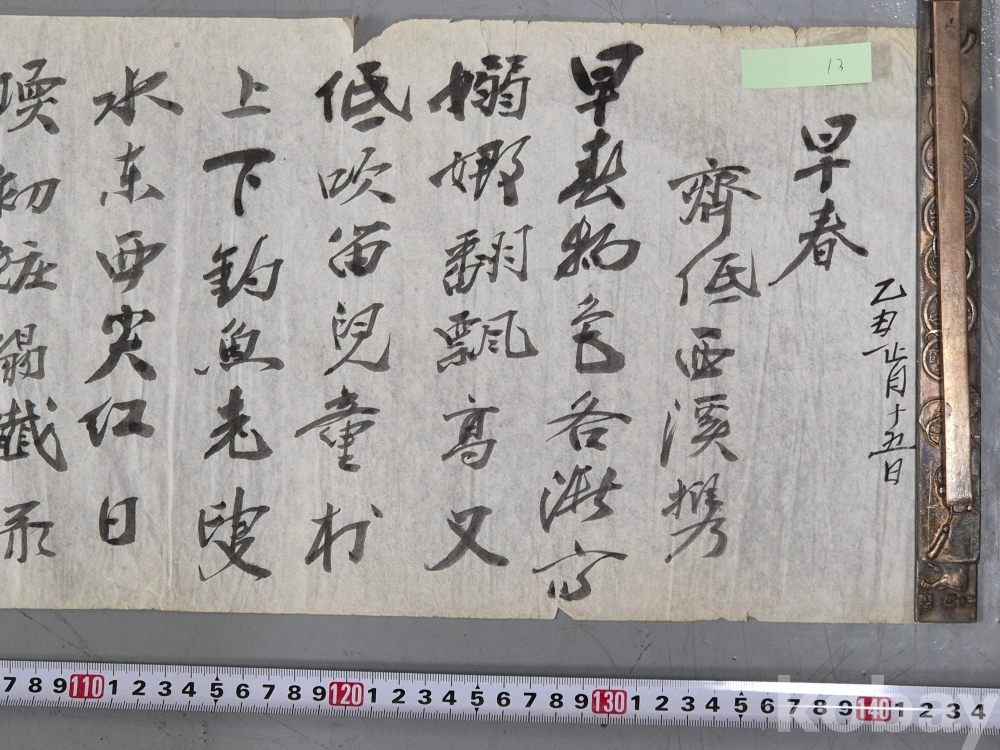 13
乙丑 正月十五日
早春
齊低西溪携
早春物色各漸高
嫋娜翻飄高又
低吹笛兒童村
上下釣魚老叟
水东西尖红日
初粧
形
7 8 9 110 1 2 3 4 5 6 7 8 9 120 1 2 3 4 5 6 7 8 9 130 1 2 3 4 5 6 7 8 9 140 1 2 3 4
kobay